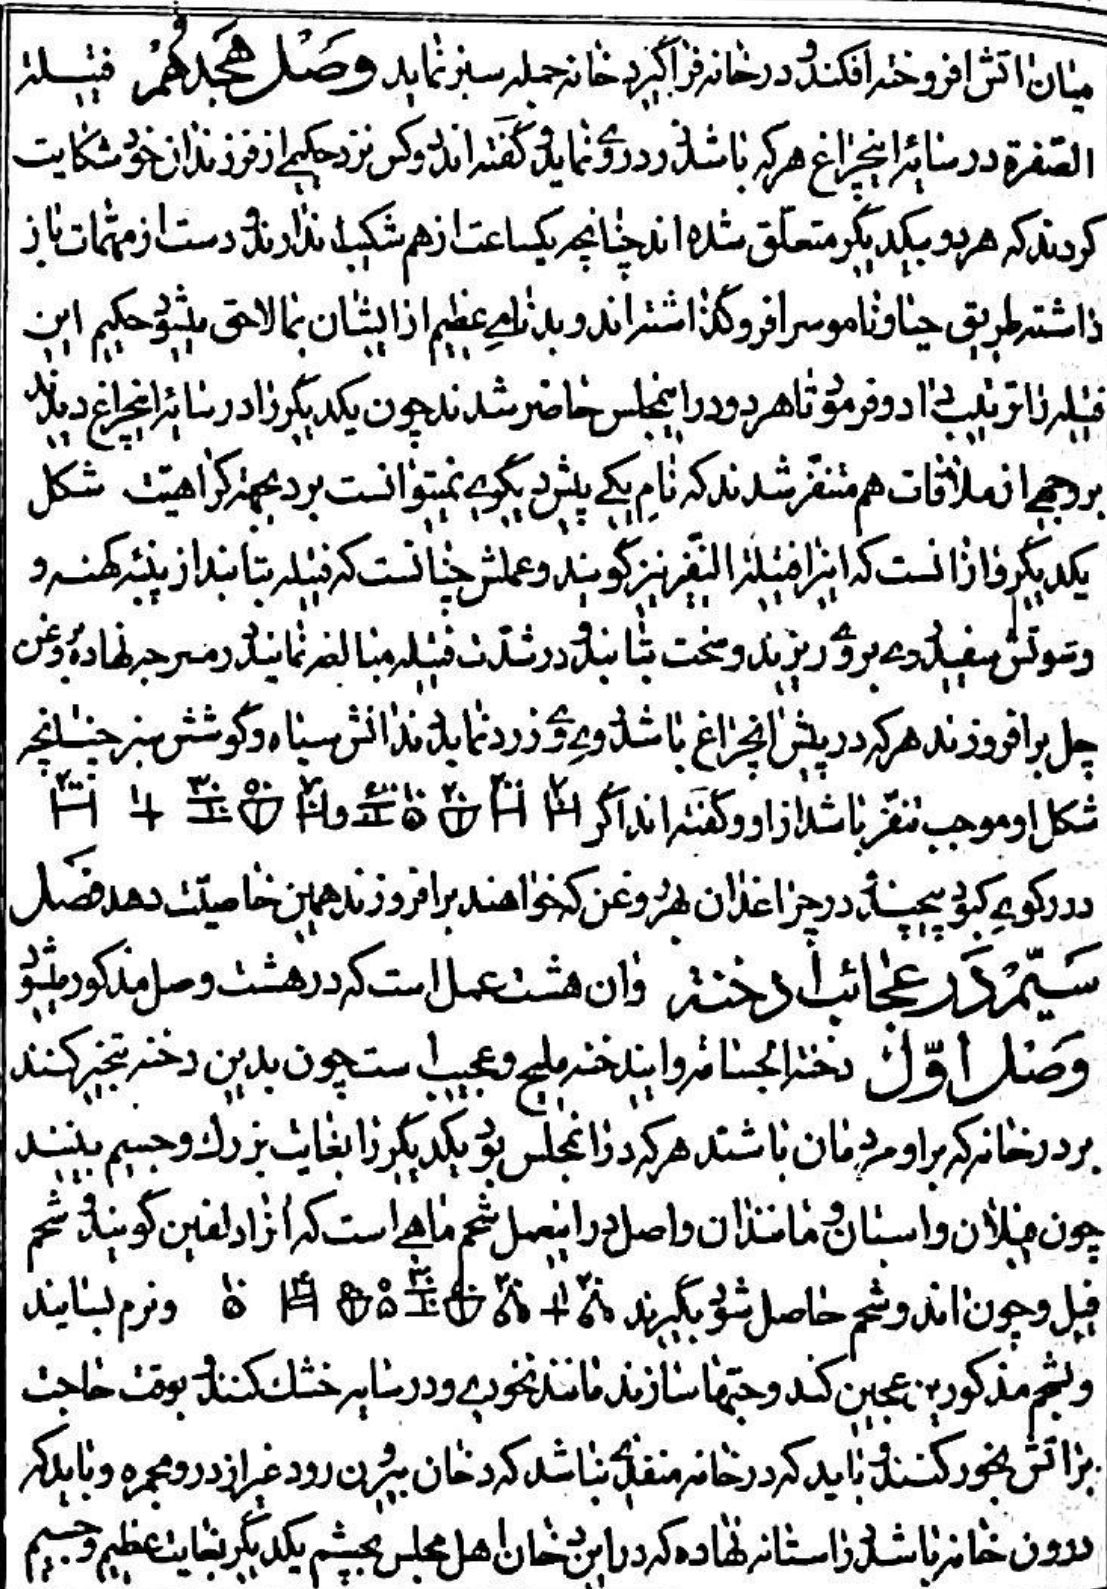 میان آتش افروخته افکند و در خانه فراگیرد خانه جمله سبز نماید وصل هجدهم فتیلة
الصفرة در سایه اینچراغ هر که باشد زرد روی نماید و گفته اند دو کس نزد حکیمی از فرزندان خود شکایت
کردند که هر دو بیکدیگر متعلق شده اند چنانچه یکساعت از هم شکیب ندارند و دست از مهمات باز
داشته طریق حیا و ناموس را فرو گذاشته اند و بدنامی عظیم از ایشان بما لاحق میشود حکیم این
فتیله را ترتیب داد و فرمود تا هر دو در اینمجلس حاضر شدند چون یکدیگر را در سایه اینچراغ دیدند
بر وجهی از ملاقات هم متنفر شدند که نام یکی پیش دیگری نمیتوانست برد بجهة کراهیت شکل
یکدیگر و ازانست که اینرا فتیلة النفر نیز گویند و عملش چنانست که فتیله بتابند از پنبه کهنه و
و سوتش سفید دے بروی ریزند و سخت بتابند و در شدت فتیله مبالغه نمایند و در مسرجه نهاده بروغن
چل برافروزند هر که در پیش اینچراغ باشد روی وی زرد نماید دندانش سیاه و گوشش سبز چنانچه
شکل او موجب تنفر باشد از او و گفته اند اگر و
در رکوی کبود پیچند و در چراغدان بهر روغن که خواهند برافروزند همین خاصیت دهد فصل
سیم در عجائب ادخنه و ان هشت عمل است که در هشت وصل مذکور میشود
وصل اول دخنه الجسامه و ایندخنه ملیح و عجیب است چون بدین دخنه تبخیر کنند
بر در خانه که بر او مردمان باشند هر که در انمجلس بود یکدیگر را بغایت بزرك و جسیم بینند
چون فیلان و اسبان و مانندان و اصل در اینعمل شحم ماهی است که انرا دلفین گویند و شحم
فیل و چون اند و شحم حاصل شود بگیرند و نرم بسایند
و بشحم مذکورین عجین کند و حبها سازند مانند نخودی و در سایه خشك کنند و بوقت حاجت
بر آتش بخور کنند و باید که در خانه منفذی نباشد که دخان بیرون رود غیر از در و مجمره و باید که
درون خانه باشد در استانه نهاده که در این دخان اهل مجلس بچشم یکدیگر بغایت عظیم و جسیم